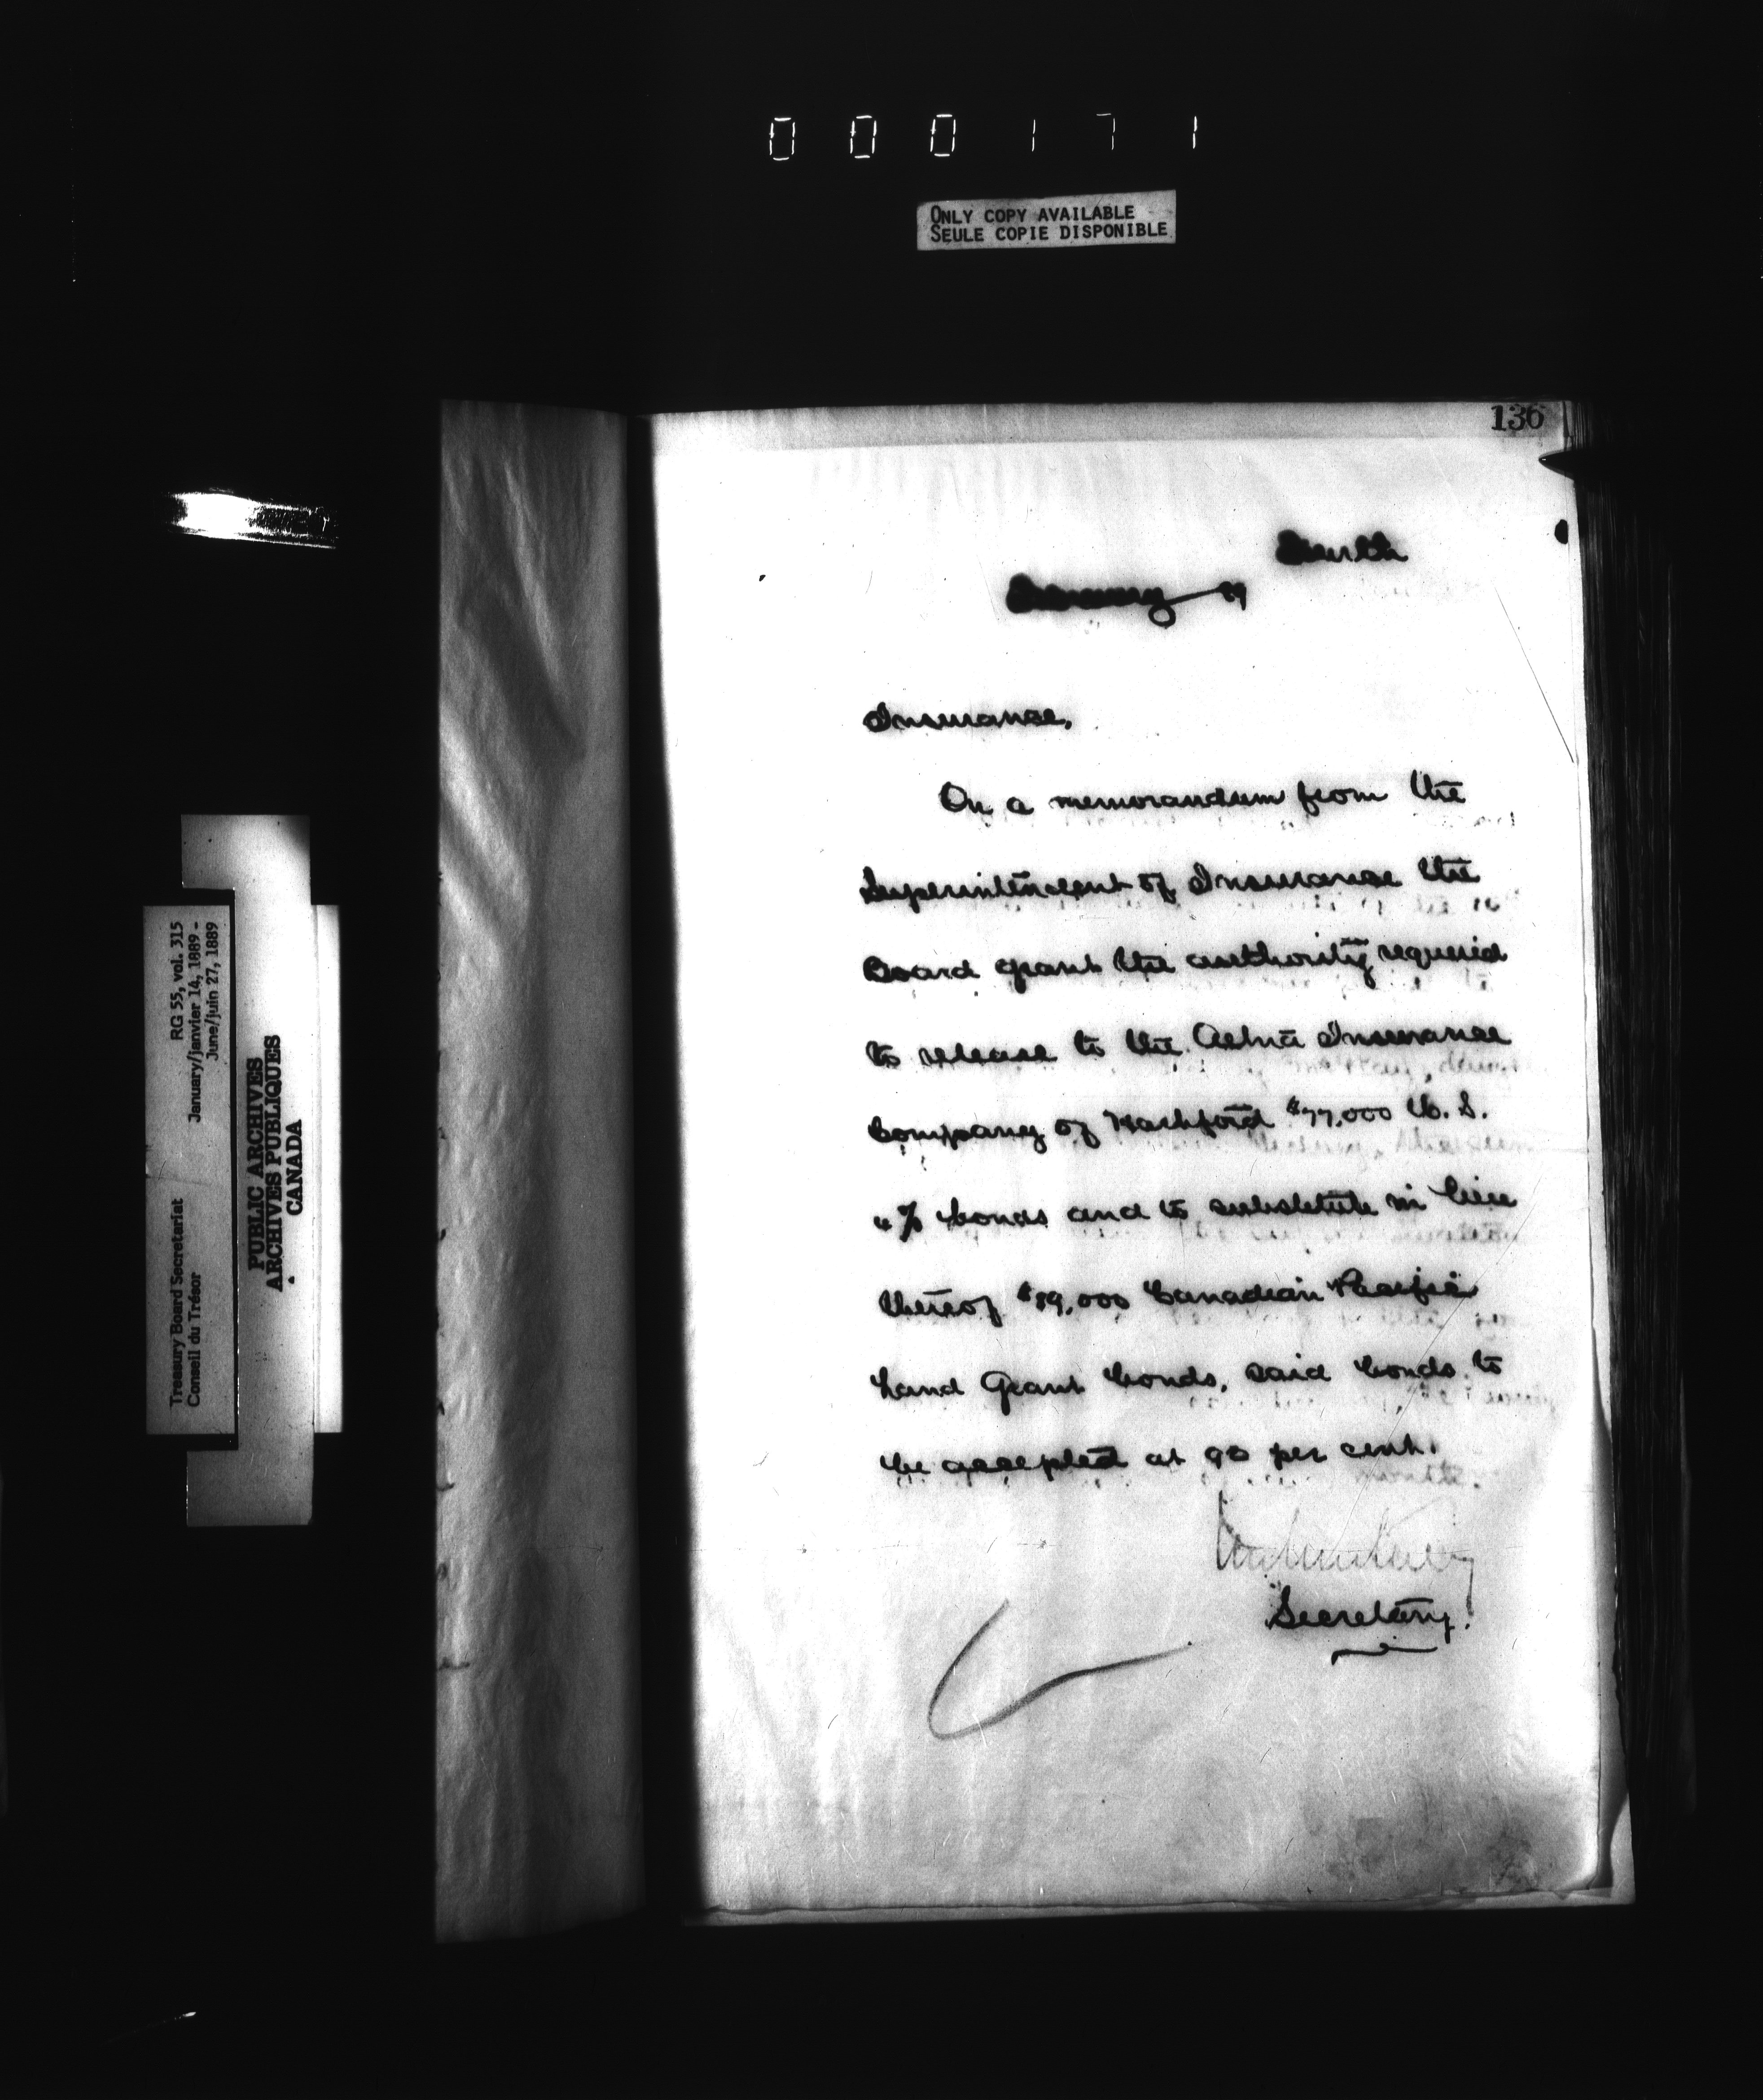 000171
ONLY COPY AVAILABLE
SEULE COPIE DISPONIBLE
136
89
Insurance.
On a memorandum from the
Superintendent of Insurance the
Board grant the authority required
to release to the Aetna Insurance
Company of Hartford $77,000 U. S.
4% bonds and to substitute in lieu
thereof $89,000 Canadian Pacific
Land Grant bonds, said bonds to
be accepted at 90 per cent.
Secretary.
Treasury Board Secretariat
Conseil du Trésor
RG 55, vol. 315
January/janvier 14, 1889 -
June/juin 27, 1889
PUBLIC ARCHIVES
ARCHIVES PUBLIQUES
CANADA